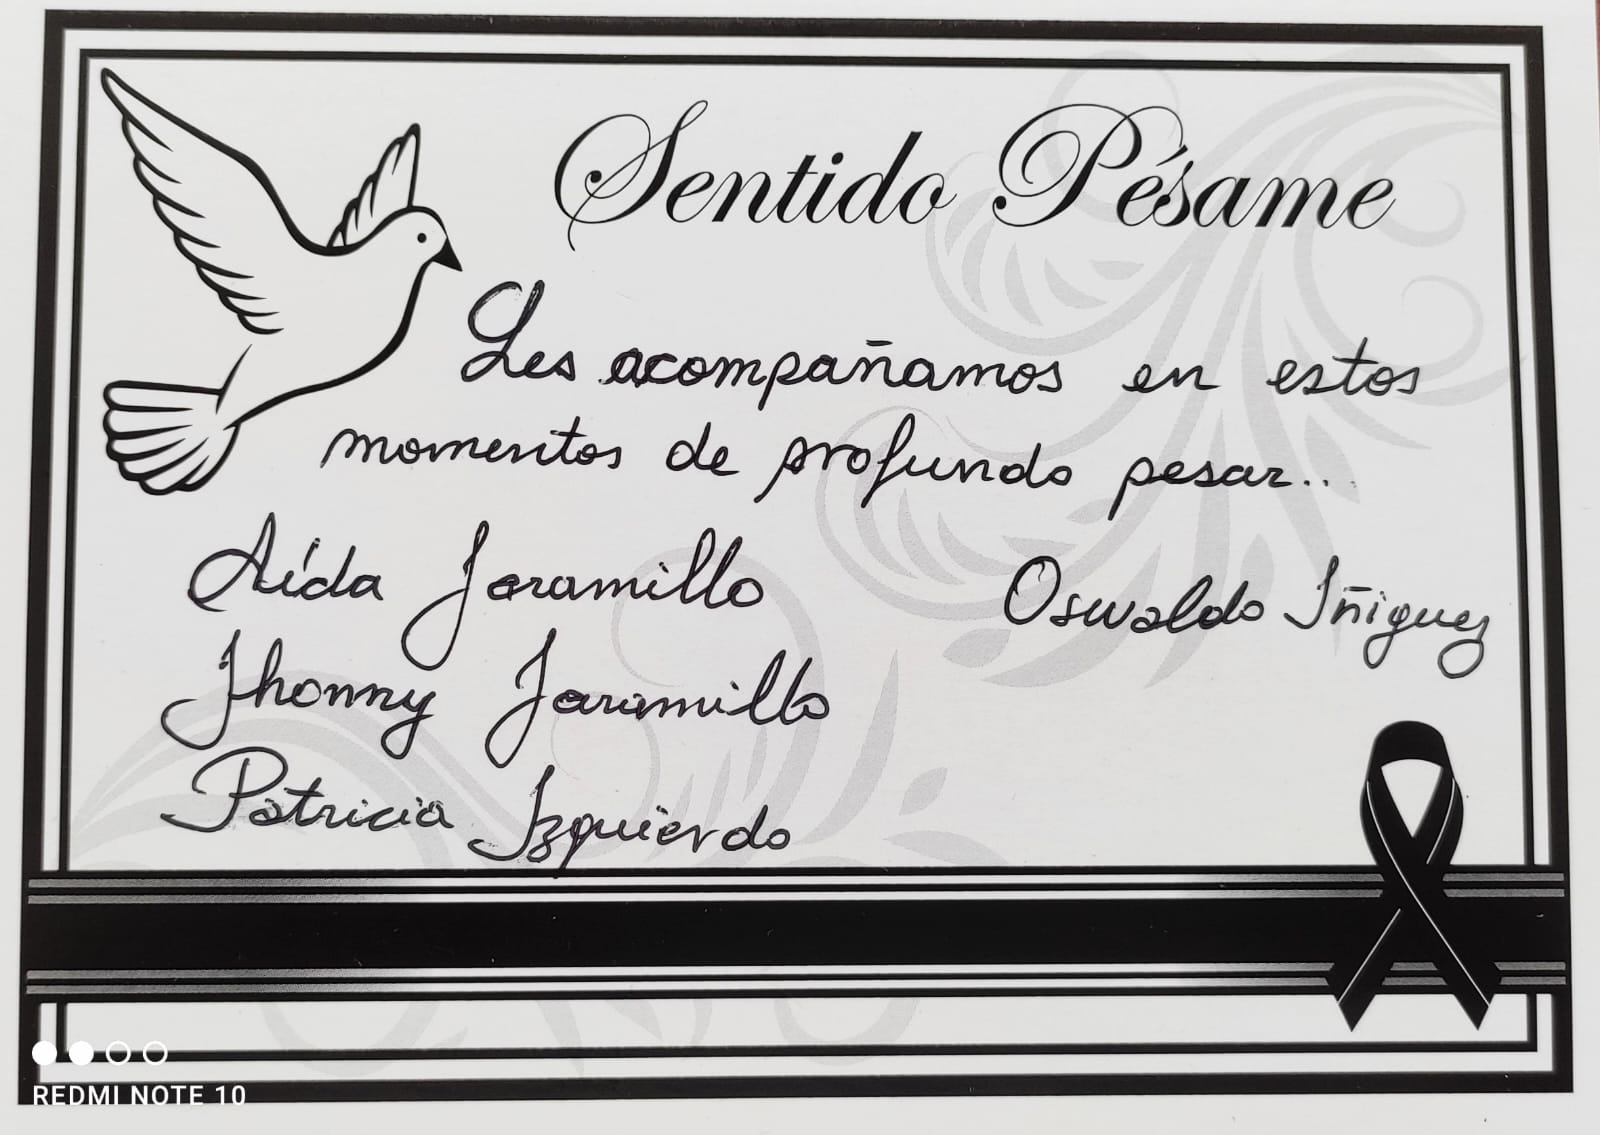 Sentido Pésame
Les acompañamos en estos
momentos de profundo pesar...
Aída Jaramillo
Oswaldo Iñiguez
Jhonny Jaramillo
Patricia Izquierdo
REDMI NOTE 10